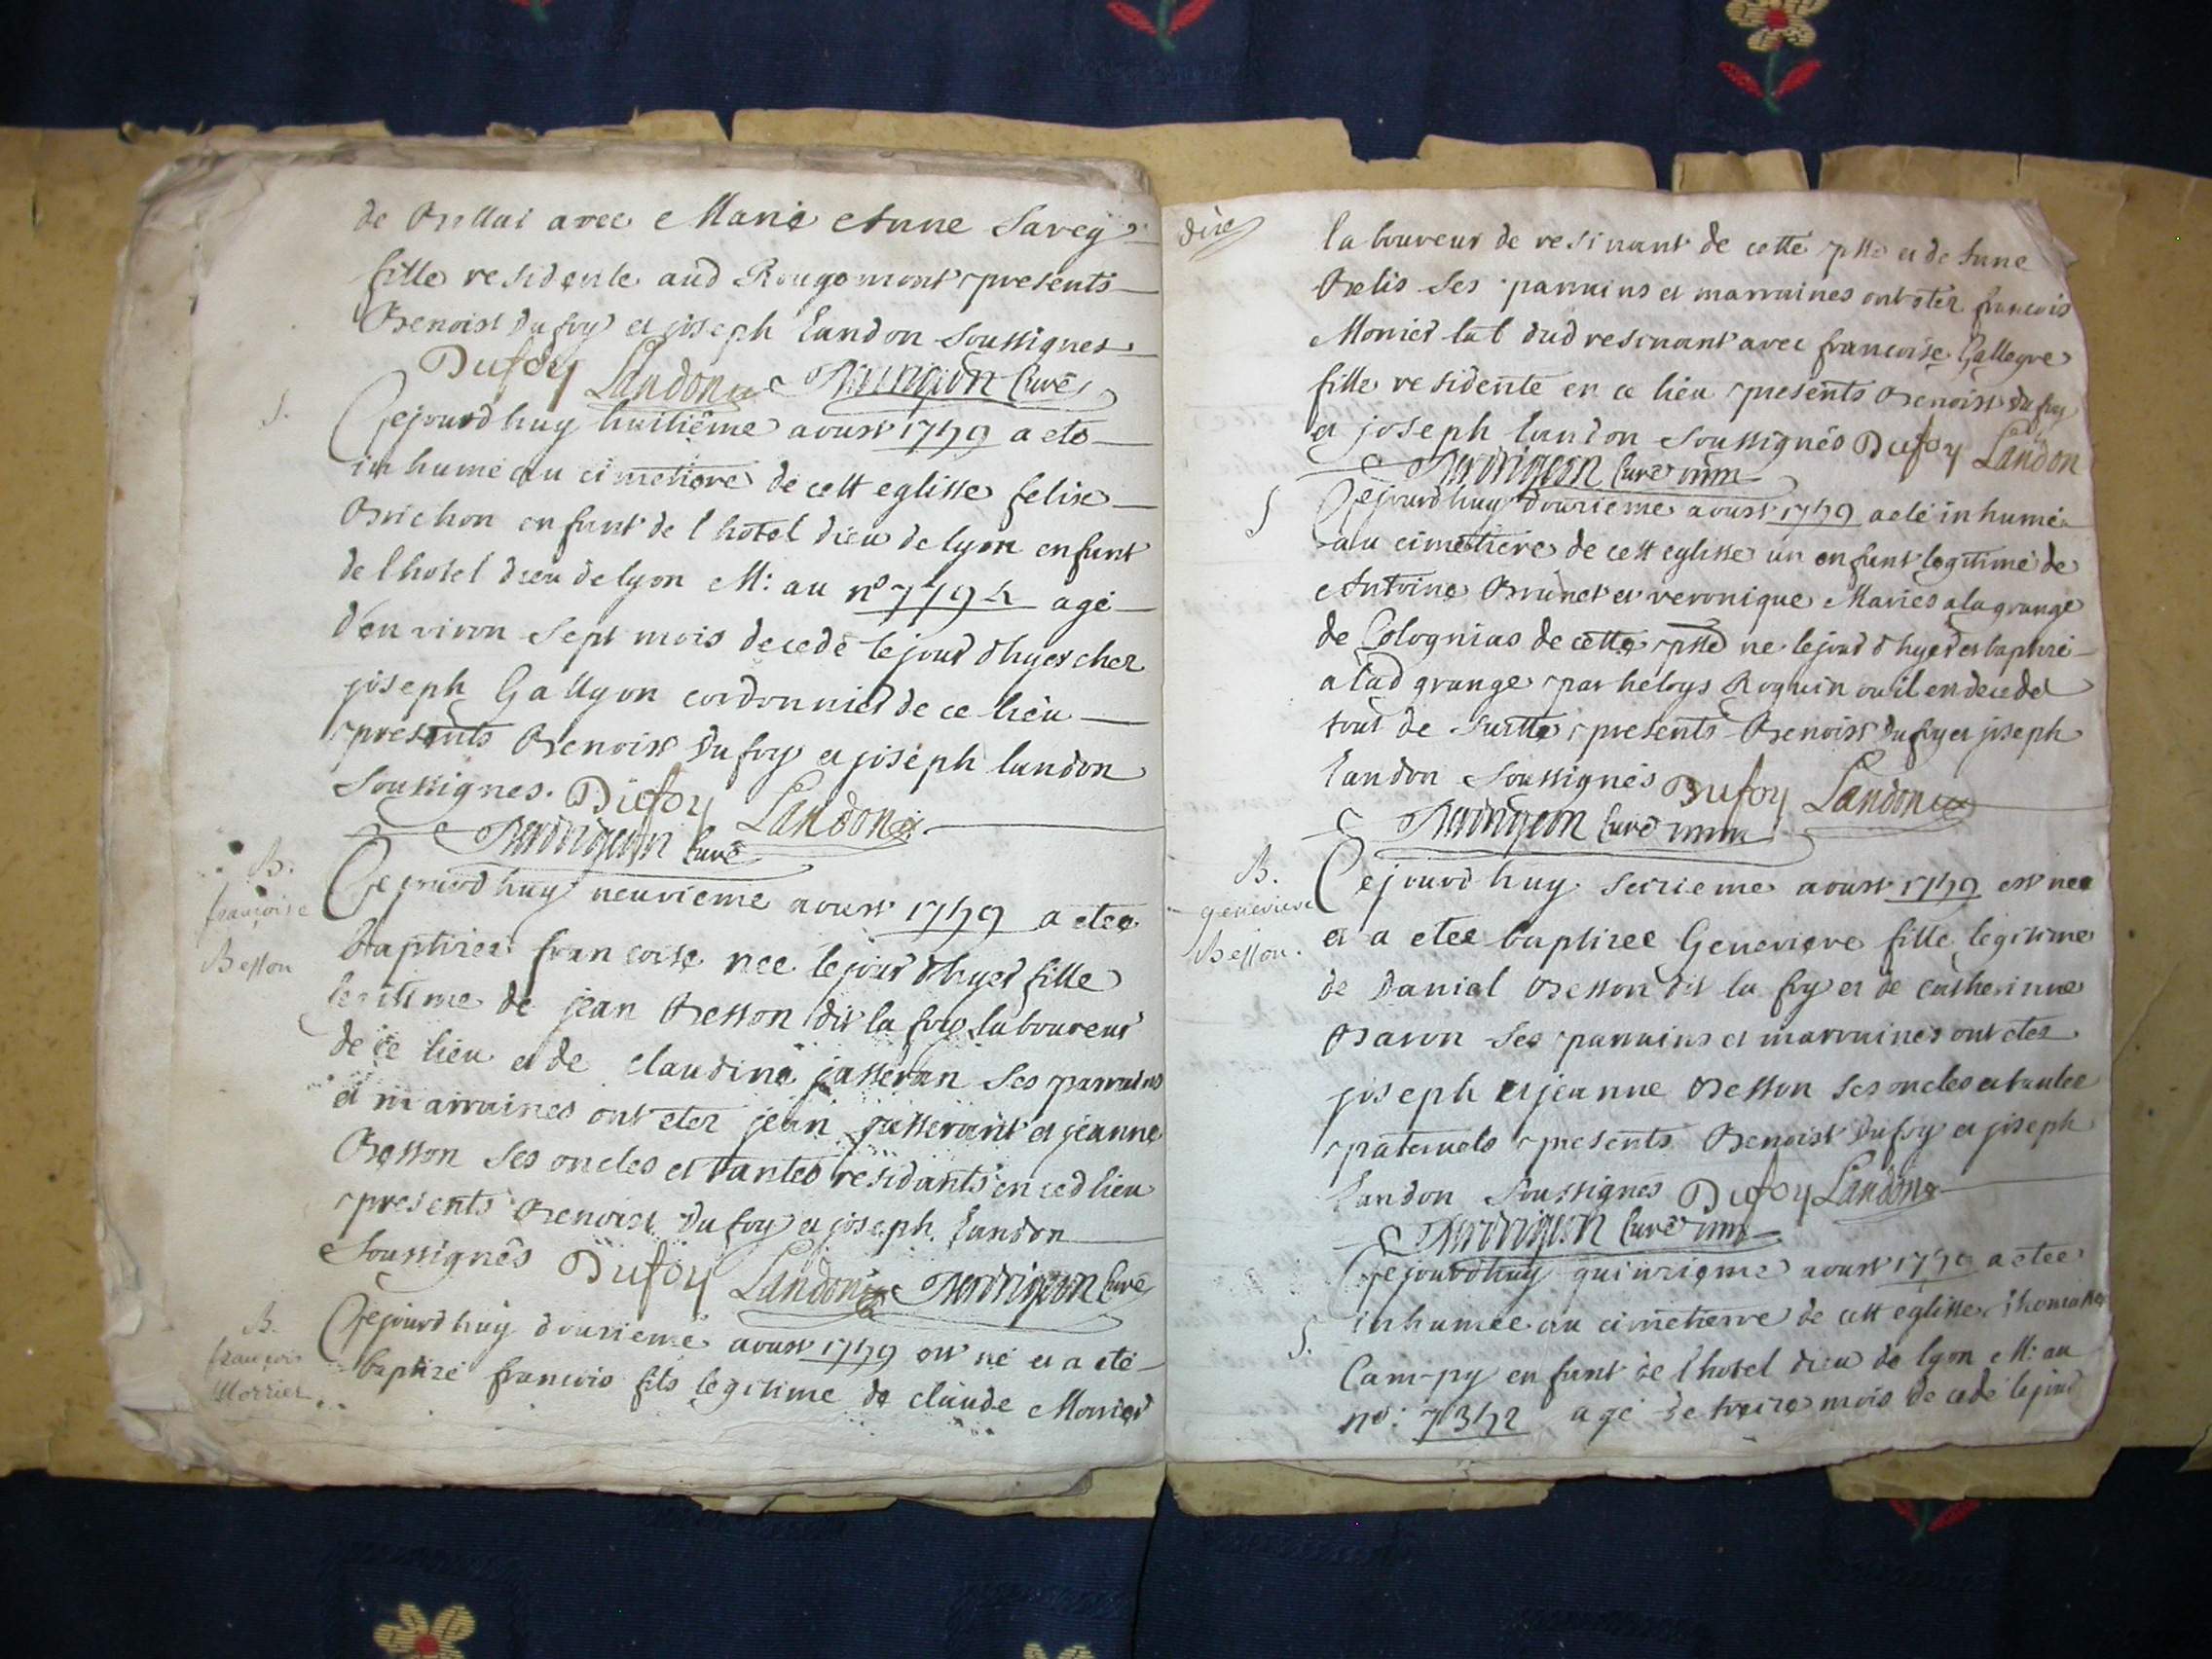 de Bellai avec Marie Anne Savey
fille residente aud Rougemont presents
Benoist Dufoy et joseph Landon soussignes
Dufoy Landon curé
S.
Cejourdhuy huitième aoust 1749 a eté
inhumé au cimetiere de cett eglisse felix
Brichon enfant de l hotel dieu de lyon enfant
de l hotel dieu de lyon M: au n° agé
d'environ sept mois decedé le jour d hyer chez
joseph Gallyon cordonnier de ce lieu
presents Benoist Dufoy et joseph landon
soussignes. Dufoy Landon
curé
B.
françoise
Besson
Cejourdhuy neuvieme aoust 1749 a etee
baptizee francoise nee le jour d hyer fille
legitime de jean Besson dit la foy laboureur
de ce lieu et de claudine jasseran ses parrains
et marraines ont etez jean jasserant et jeanne
Besson ses oncles et tantes residants en ced lieu
presents Benoist Dufoy et joseph Landon
soussignés Dufoy Landon curé
B.
françois
Monier
Cejourdhuy douzieme aoust 1749 est né et a eté
baptizé francois fils legitime de claude Monier
dire
laboureur de resinant de cette psse et de Anne
Belis ses parrains et marraines ont etez francois
Monier lab dud resinant avec francoise Gallegre
fille residente en ce lieu presents Benoist Dufoy
et joseph Landon soussignés Dufoy Landon
curé
S
Cejourdhuy douzieme aoust 1749 a eté inhumé
au cimetiere de cett eglisse un enfant legitime de
Antoine Brunet et veronique Maries a la grange
de Colognias de cette psse né le jour d hyer et baptizé
a lad grange par heloys Roguin ou il en decedé
tout de suitte presents Benoist Dufoy et joseph
Landon soussignés Dufoy Landon
curé
B.
genevieve
Besson.
Cejourdhuy seizieme aoust 1749 est nee
et a etee baptizee Genevieve fille legitime
de Danial Besson dit la foy et de Catherinne
Baron ses parrains et marraines ont etez
joseph et jeanne Besson ses oncles et tantes
paternels presents Benoist Dufoy et joseph
Landon soussignés Dufoy Landon
curé
S.
Cejourdhuy quinzieme aoust a etee
inhumee au cimetierre de cett eglisse
Cam-py enfant de l hotel dieu de lyon M: au
n°: agé de treize mois decedé le jour